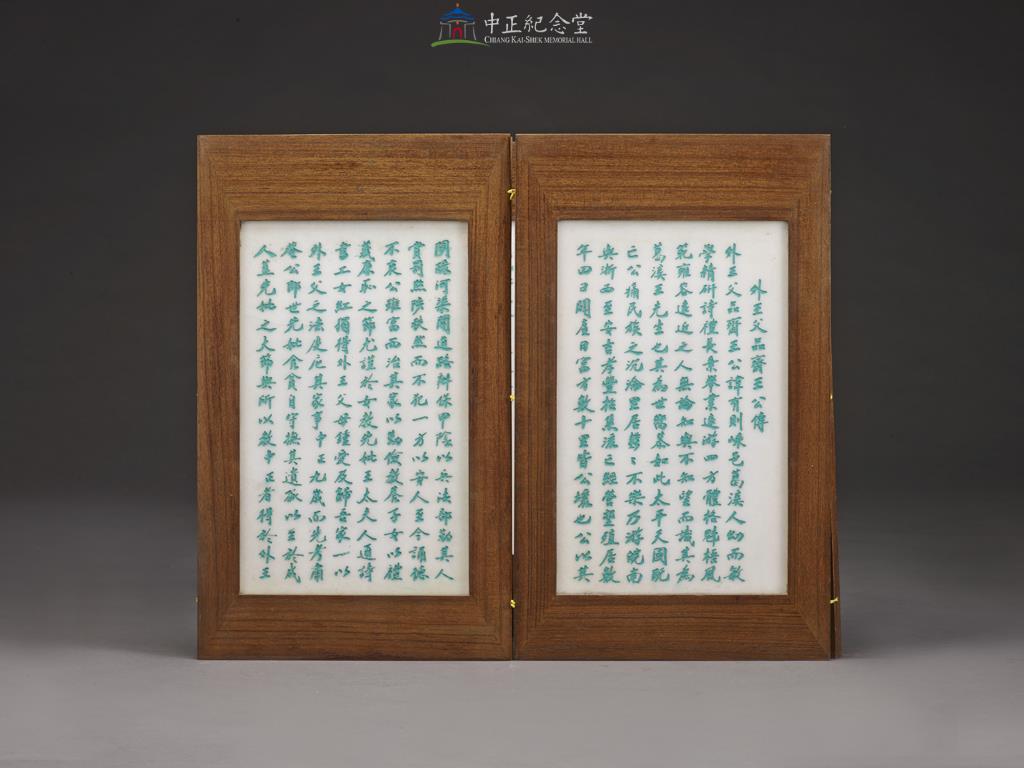 中正紀念堂
CHIANG KAI-SHEK MEMORIAL HALL
外王父品齋王公傳
外王父品齋王公諱有則嵊邑葛溪人幼而敏
學精研詩禮長棄舉業遨游四方體格魁梧風
範雍容遠近之人無論知與不知望而識其為
葛溪王先生也其為世驚慕如此太平天國既
亡公痛民族之沉淪里居鬱々不樂乃游皖南
與浙西至安吉孝豐招集流亡經營墾殖居數
年田日闢廬日富方數十里皆公壤也公以其
間疏河渠開道路辦保甲陰以兵法部勒其人
賞罰熙陟秩然而不死一方以安人至今誦德
不衰公雖富而治其家以勤儉教養子女以禮
義廉恥之節尤謹於女教先妣王太夫人通詩
書工女紅獨得外王父母鍾愛及歸吾家一以
外王父之法度庀其家事中正九歲而先考肅
菴公即世先妣食貧自守撫其遺孤以至於成
人蓋先妣之大節與所以教中正者得於外王